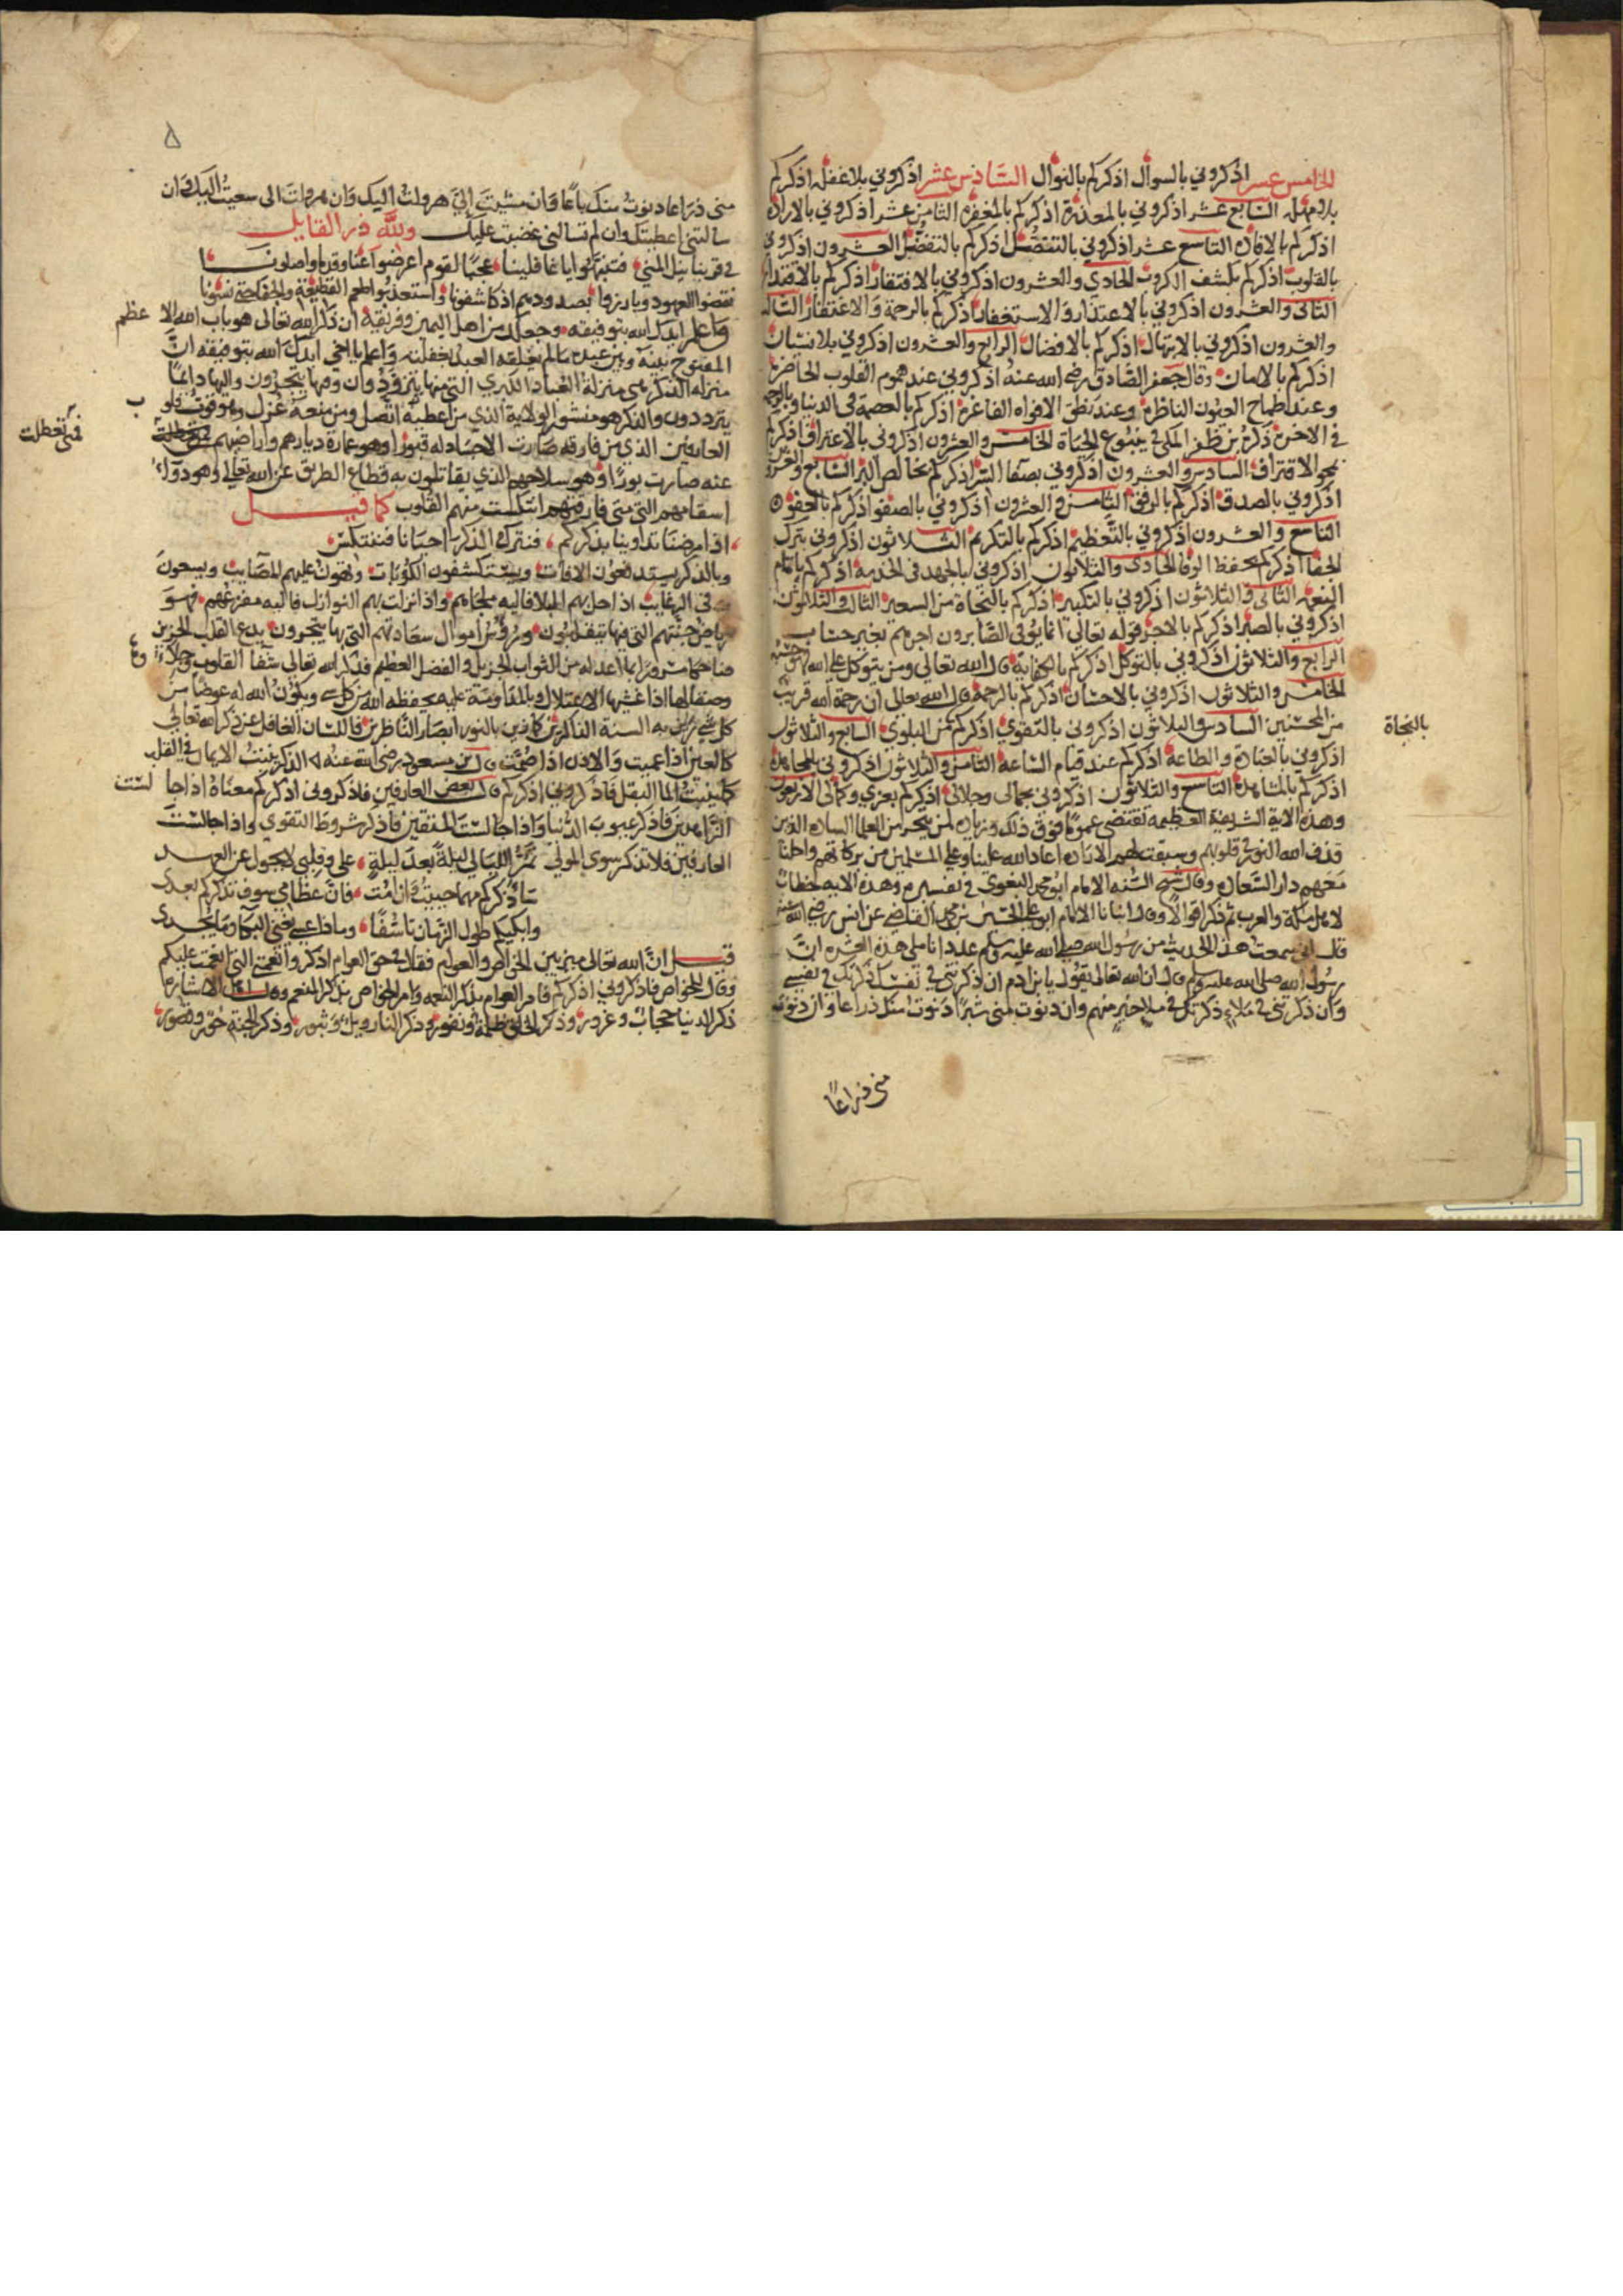 الخامس عشر اذكروني بالسوال اذكركم بالنوال السادس عشر اذكروني بلا غفلة اذكركم
بلا مهلة السابع عشر اذكروني بالمعذرة اذكركم بالمغفرة الثامن عشر اذكروني بالارادة
اذكركم بالافادة التاسع عشر اذكروني بالتفضل اذكركم بالتفضل العشرون اذكروني
بالقلوب اذكركم بكشف الكروب الحادي والعشرون اذكروني بالافتقار اذكركم بالاقتدار
الثاني والعشرون اذكروني بالاعتذار والاستغفار اذكركم بالرحمة والاغتفار الثالث
والعشرون اذكروني بالابتهال اذكركم بالافضال الرابع والعشرون اذكروني بلا نسيان
اذكركم بالامان وقال جعفر الصادق رضي الله عنه اذكروني عند هموم القلوب الحاضرة
وعند اطماح العيون الناظرة وعند نطق الافواه الفاغرة اذكركم بالعصمة في الدنيا وبالرحمة
في الاخرة ذكره بن ظفر المكي في ينبوع الحياة الخامس والعشرون اذكروني بالاعتراف اذكركم
بمحو الاقتراف السادس والعشرون اذكروني بصفا السر اذكركم بخالص البر السابع والعشرون
اذكروني بالصدق اذكركم بالرفق الثامن والعشرون اذكروني بالصفو اذكركم بالعفو
التاسع والعشرون اذكروني بالتعظيم اذكركم بالتكريم الثلاثون اذكروني بترك
الجفا اذكركم بحفظ الوفا الحادي والثلاثون اذكروني بالجهد في الخدمة اذكركم باتمام
النعمة الثاني والثلاثون اذكروني بالتكبير اذكركم بالنجاة من السعير الثالث والثلاثون
بالنجاة
اذكروني بالصبر اذكركم بالاجر قوله تعالى انما يوفى الصابرون اجرهم بغير حساب
الرابع والثلاثون اذكروني بالتوكل اذكركم بالكفاية قال الله تعالى ومن يتوكل على الله فهو حسبه
الخامس والثلاثون اذكروني بالاحسان اذكركم بالرحمة قال الله تعالى ان رحمة الله قريب
من المحسنين السادس والثلاثون اذكروني بالتقوى اذكركم عند البلوى السابع والثلاثون
اذكروني بالعبادة والطاعة اذكركم عند قيام الساعة الثامن والثلاثون اذكروني بالمجاهدة
اذكركم بالمشاهدة التاسع والثلاثون اذكروني بجمالي وجلالي اذكركم بعزي وكمالي الاربعون
وهذه الاية الشريفة العظيمة تقتضي عموما فوق ذلك وزيادة لمن يتبحر من العلما السادة الذين
قذف الله النور في قلوبهم وسبقت لهم الارادة اعاد الله علينا وعلى المسلمين من بركاتهم واحلنا
معهم دار السعادة وقال محي السنة الامام ابو محمد البغوي في تفسيره وهذه الاية خطاب
لاهل مكة والعرب ثم ذكر اقوالا وقال انبانا الامام ابو علي الحسين بن محمد القاضي عن انس رضي الله عنه
قال اني سمعت هذا الحديث من رسول الله صلى الله عليه وسلم عدد اناملي هذه العشرة ان
رسول الله صلى الله عليه وسلم قال ان الله تعالى يقول يا بن ادم ان ذكرتني في نفسك ذكرتك في نفسي
وان ذكرتني في ملاء ذكرتك في ملا خير منهم وان دنوت مني شبرا دنوت منك ذراعا وان دنوت
مني ذراعا
٥
مني ذراعا دنوت منك باعا وان مشيت الي هرولت اليك وان هرولت الى سعيت اليك وان
سالتني اعطيتك وان لم تسالني غضبت عليك ولله در القايل
في قربنا نيل المنى فتنبهوا يا غافلينا عجبا لقوم اعرضوا عنا وقد واصلونا
نقضوا العهود وبارزوا بصدودهم اذ كاشفونا واستعذبوا طعم القطيعة والجفا حتى نسونا
واعلم ايدك الله بتوفيقه وجعلك من اهل اليمين وفريقه ان ذكر الله تعالى هو باب الله الاعظم
المفتوح بينه وبين عبده ما لم يغلقه العبد بغفلته واعلم يا اخي ايدك الله بتوفيقه ان
منزلة الذكر هي منزلة العباد الكبري التي منها يتزودون وفيها يتجرون واليها دايما
يترددون والذكر هو منشور الولاية الذي من اعطيه اتصل ومن منعه عزل وهو قوت قلوب
العارفين الذي من فارقه صارت الاجساد له قبورا وهو عمارة ديارهم واراضيهم
فمتى تعطلت
عنه صارت بورا وهو سلاحهم الذي يقاتلون به قطاع الطريق عن الله تعالى وهو دوآء
اسقامهم التي متى فارقهم انتكست منهم القلوب كما قيل
اذا مرضنا تداوينا بذكركم فنترك الذكر احيانا فننتكس
وبالذكر يستدفعون الافات ويستكشفون الكربات وتهون عليهم المصايب ويسحون
في الرغايب اذا حل بهم البلا فاليه ملجاهم واذا نزلت بهم النوازل فاليه مفزعهم فهو
رياض جنتهم التي فيها يتقلبون ورؤس اموال سعادتهم التي بها يتجرون يدع القلب الحزين
ضاحكا مسرورا بما اعد له من الثواب الجزيل والفضل العظيم فذكر الله تعالى شفا القلوب وجلاء
وصقالها اذا غشيها الاعتلال وبالمداومة عليه يحفظه الله من كل شي ويكون الله له عوضا من
كل شي زين به السنة الذاكرين كما زين بالنور ابصار الناظرين فاللسان الغافل عن ذكر الله تعالى
كالعين اذا عميت والاذن اذا صمت قال بن مسعود رضي الله عنه الذكر ينبت الايمان في القلب
كما ينبت الما البقل فاذكروني اذكركم قال بعض العارفين فاذكروني اذكركم معناه اذا جالست
الزاهدين فاذكر عيوب الدنيا واذا جالست المتقين فاذكر شروط التقوى واذا جالست
العارفين فلا تذكر سوى المولى تمر الليالي ليلة بعد ليلة على وقلبي لا يحول عن العهد
ساذكركم مهما حييت فان امت فان عظامي سوف تذكركم بعدي
وابكيكم طول الزمان تاسفا وماذا عسى يغني البكا وما يجدي
قيل ان الله تعالى ميز بين الخواص والعوام فقال في حق العوام اذكروا نعمتي التي انعمت عليكم
وقال للخواص فاذكروني اذكركم فامر العوام بذكر النعمه وامر الخواص بذكر المنعم وقال اهل الاشارة
ذكر الدنيا حجاب وغرور وذكر الخلق ظلمة ونفور وذكر النار ويل وثبور وذكر الجنة حور وقصور